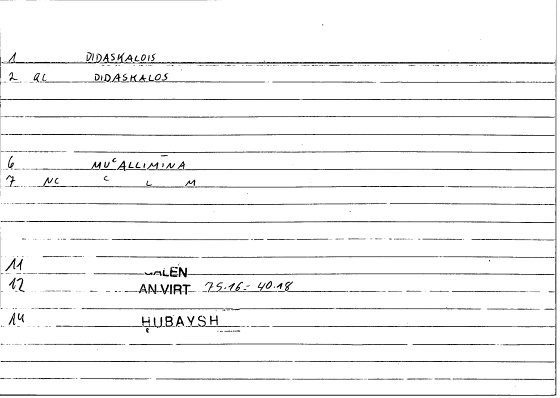 1 DIDASKALOIS
2 aL DIDASKALOS
6 MUᶜALLIMĪNA
7 NC ᶜ L M
11 GALEN
12 AN VIRT 75.16 - 40.18
14 ḤUBAYSH